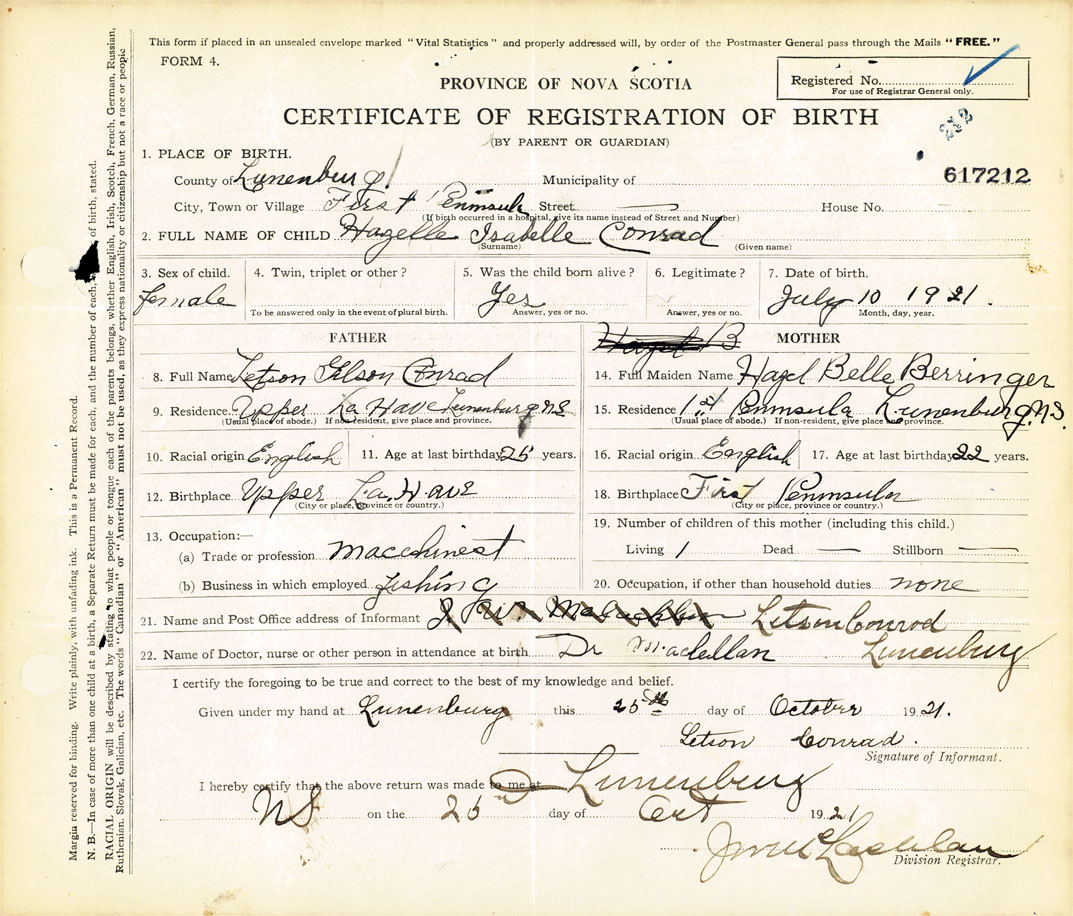 This form if placed in an unsealed envelope marked "Vital Statistics" and properly addressed will, by order of the Postmaster General pass through the Mails "FREE."
FORM 4.
PROVINCE OF NOVA SCOTIA
Registered No.
For use of Registrar General only.
CERTIFICATE OF REGISTRATION OF BIRTH
(BY PARENT OR GUARDIAN)
617212
1. PLACE OF BIRTH.
County of Lunenburg Municipality of
City, Town or Village First Peninsula Street — House No. —
(If birth occurred in a hospital, give its name instead of Street and Number)
2. FULL NAME OF CHILD Hazelle Isabelle Conrad
(Surname) (Given name)
3. Sex of child. 4. Twin, triplet or other? 5. Was the child born alive? 6. Legitimate? 7. Date of birth.
female Yes July 10 1921.
To be answered only in the event of plural birth. Answer, yes or no. Answer, yes or no. Month, day, year.
FATHER
8. Full Name Letson Conrad
9. Residence Upper La Have Lunenburg N.S
(Usual place of abode.) If non-resident, give place and province.
10. Racial origin English 11. Age at last birthday 25 years.
12. Birthplace Uppser La Have
(City or place, province or country.)
13. Occupation:—
(a) Trade or profession macchinest
(b) Business in which employed fishing
Hazel B
MOTHER
14. Full Maiden Name Hazel Belle Berringer
15. Residence 1st Peninsula Lunenburg N.S.
(Usual place of abode.) If non-resident, give place and province.
16. Racial origin English 17. Age at last birthday 22 years.
18. Birthplace First Peninsula
(City or place, province or country.)
19. Number of children of this mother (including this child.)
Living 1 Dead — Stillborn —
20. Occupation, if other than household duties none
21. Name and Post Office address of Informant Letson Conrod
22. Name of Doctor, nurse or other person in attendance at birth Dr Maclellan Lunenburg
I certify the foregoing to be true and correct to the best of my knowledge and belief.
Given under my hand at Lunenburg this 25th day of October 1921.
Letson Conrad.
Signature of Informant.
I hereby certify that the above return was made to me at Lunenburg
NS on the 25 day of Oct 1921
Division Registrar.
Margin reserved for binding. Write plainly, with unfading ink. This is a Permanent Record.
N. B.—In case of more than one child at a birth, a Separate Return must be made for each, and the number of each, of birth, stated.
RACIAL ORIGIN will be described by stating to what people or tongue each of the parents belongs, whether English, Irish, Scotch, French, German, Russian,
Ruthenian, Slovak, Galician, etc. The words "Canadian" or "American" must not be used, as they express nationality or citizenship but not a race or people